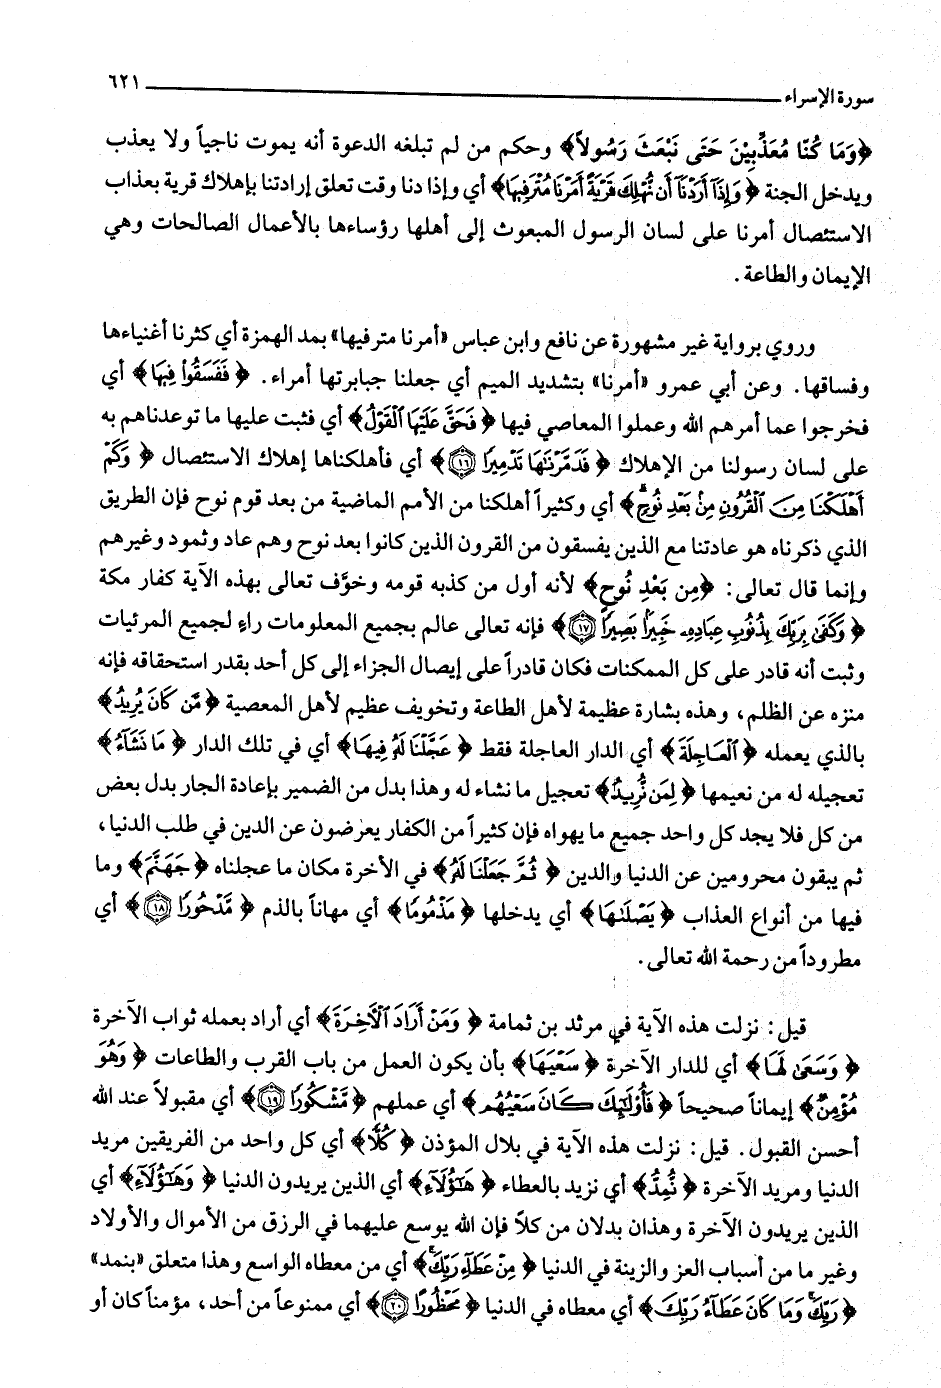 سورة الإسراء ٦٢١
﴿وَمَا كُنَّا مُعَذِّبِينَ حَتَّى نَبْعَثَ رَسُولاً﴾ وحكم من لم تبلغه الدعوة أنه يموت ناجياً ولا يعذب
ويدخل الجنة ﴿وَإِذَا أَرَدْنَا أَن نُّهْلِكَ قَرْيَةً أَمَرْنَا مُتْرَفِيهَا﴾ أي وإذا دنا وقت تعلق إرادتنا بإهلاك قرية بعذاب
الاستئصال أمرنا على لسان الرسول المبعوث إلى أهلها رؤساءها بالأعمال الصالحات وهي
الإيمان والطاعة.
وروي برواية غير مشهورة عن نافع وابن عباس «أمرنا مترفيها» بمد الهمزة أي كثرنا أغنياءها
وفساقها. وعن أبي عمرو «أمرنا» بتشديد الميم أي جعلنا جبابرتها أمراء. ﴿فَفَسَقُوا فِيهَا﴾ أي
فخرجوا عما أمرهم الله وعملوا المعاصي فيها ﴿فَحَقَّ عَلَيْهَا الْقَوْلُ﴾ أي فثبت عليها ما توعدناهم به
على لسان رسولنا من الإهلاك ﴿فَدَمَّرْنَاهَا تَدْمِيرًا ﴿١٦﴾﴾ أي فأهلكناها إهلاك الاستئصال ﴿وَكَمْ
أَهْلَكْنَا مِنَ الْقُرُونِ مِنْ بَعْدِ نُوحٍ﴾ أي وكثيراً أهلكنا من الأمم الماضية من بعد قوم نوح فإن الطريق
الذي ذكرناه هو عادتنا مع الذين يفسقون من القرون الذين كانوا بعد نوح وهم عاد وثمود وغيرهم
وإنما قال تعالى: ﴿مِن بَعْدِ نُوحٍ﴾ لأنه أول من كذبه قومه وخوَّف تعالى بهذه الآية كفار مكة
﴿وَكَفَى بِرَبِّكَ بِذُنُوبِ عِبَادِهِ خَبِيرًا بَصِيرًا ﴿١٧﴾﴾ فإنه تعالى عالم بجميع المعلومات راءٍ لجميع المرئيات
وثبت أنه قادر على كل الممكنات فكان قادراً على إيصال الجزاء إلى كل أحد بقدر استحقاقه فإنه
منزه عن الظلم، وهذه بشارة عظيمة لأهل الطاعة وتخويف عظيم لأهل المعصية ﴿مَّن كَانَ يُرِيدُ﴾
بالذي يعمله ﴿الْعَاجِلَةَ﴾ أي الدار العاجلة فقط ﴿عَجَّلْنَا لَهُ فِيهَا﴾ أي في تلك الدار ﴿مَا نَشَاءُ﴾
تعجيله له من نعيمها ﴿لِمَن نُّرِيدُ﴾ تعجيل ما نشاء له وهذا بدل من الضمير بإعادة الجار بدل بعض
من كل فلا يجد كل واحد جميع ما يهواه فإن كثيراً من الكفار يعرضون عن الدين في طلب الدنيا،
ثم يبقون محرومين عن الدنيا والدين ﴿ثُمَّ جَعَلْنَا لَهُ﴾ في الآخرة مكان ما عجلناه ﴿جَهَنَّمَ﴾ وما
فيها من أنواع العذاب ﴿يَصْلَاهَا﴾ أي يدخلها ﴿مَذْمُومًا﴾ أي مهاناً بالذم ﴿مَّدْحُورًا ﴿١٨﴾﴾ أي
مطروداً من رحمة الله تعالى.
قيل: نزلت هذه الآية في مرثد بن ثمامة ﴿وَمَنْ أَرَادَ الْآخِرَةَ﴾ أي أراد بعمله ثواب الآخرة
﴿وَسَعَى لَهَا﴾ أي للدار الآخرة ﴿سَعْيَهَا﴾ بأن يكون العمل من باب القرب والطاعات ﴿وَهُوَ
مُؤْمِنٌ﴾ إيماناً صحيحاً ﴿فَأُولَئِكَ كَانَ سَعْيُهُم﴾ أي عملهم ﴿مَّشْكُورًا ﴿١٩﴾﴾ أي مقبولاً عند الله
أحسن القبول. قيل: نزلت هذه الآية في بلال المؤذن ﴿كُلًّا﴾ أي كل واحد من الفريقين مريد
الدنيا ومريد الآخرة ﴿نُّمِدُّ﴾ أي نزيد بالعطاء ﴿هَؤُلَاءِ﴾ أي الذين يريدون الدنيا ﴿وَهَؤُلَاءِ﴾ أي
الذين يريدون الآخرة وهذان بدلان من كلاً فإن الله يوسع عليهما في الرزق من الأموال والأولاد
وغير ما من أسباب العز والزينة في الدنيا ﴿مِنْ عَطَاءِ رَبِّكَ﴾ أي من معطاه الواسع وهذا متعلق «بنمد»
﴿رَبِّكَ وَمَا كَانَ عَطَاءُ رَبِّكَ﴾ أي معطاه في الدنيا ﴿مَحْظُورًا ﴿٢٠﴾﴾ أي ممنوعاً من أحد، مؤمناً كان أو